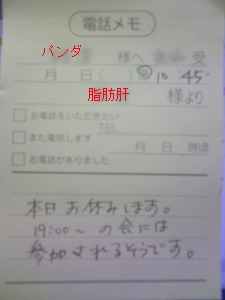 電話メモ
パンダ 様へ 受
月 日( ) 10 45
脂肪肝 様より
お電話をいただきたい
TEL
また電話します 月 日 時頃
お電話がありました
本日お休みします。
19:00〜の会には
参加されるそうです。